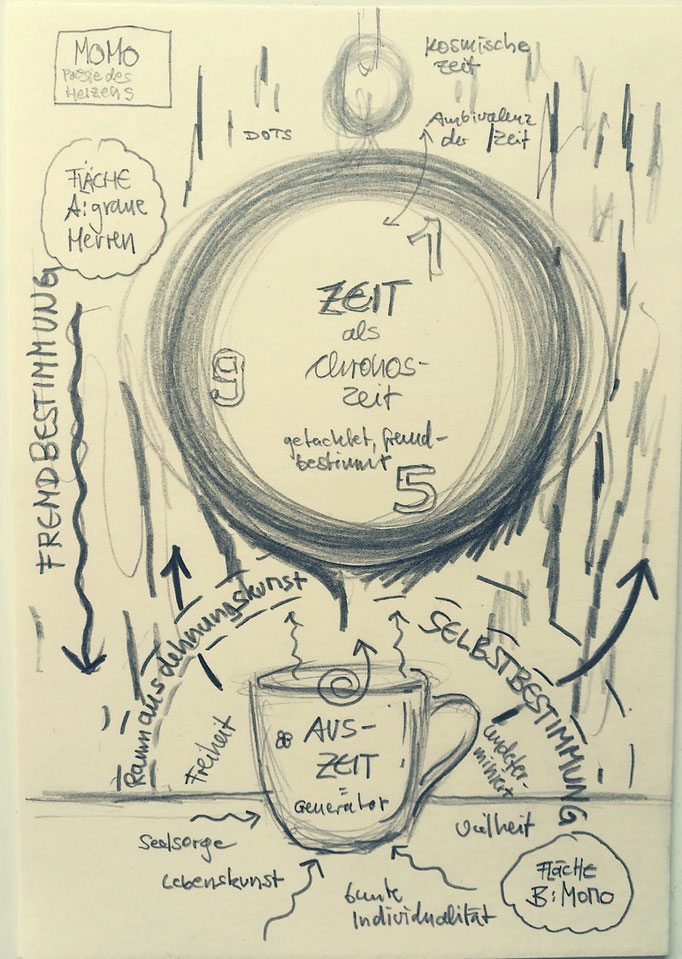 MOMO
Poesie des
Herzens
DOTS
Kosmische
Zeit
Ambivalenz
der Zeit
FLÄCHE
A: graue
Herren
FREMDBESTIMMUNG
1
ZEIT
als
Chronos-
zeit
getacktet, fremd-
bestimmt
9
5
Raumausdehnungskunst
SELBSTBESTIMMUNG
Freiheit
AUS-
ZEIT
=
Generator
undeter-
miniert
Seelsorge
Lebenskunst
bunte
Individualität
Vielheit
FLÄCHE
B: MOMO